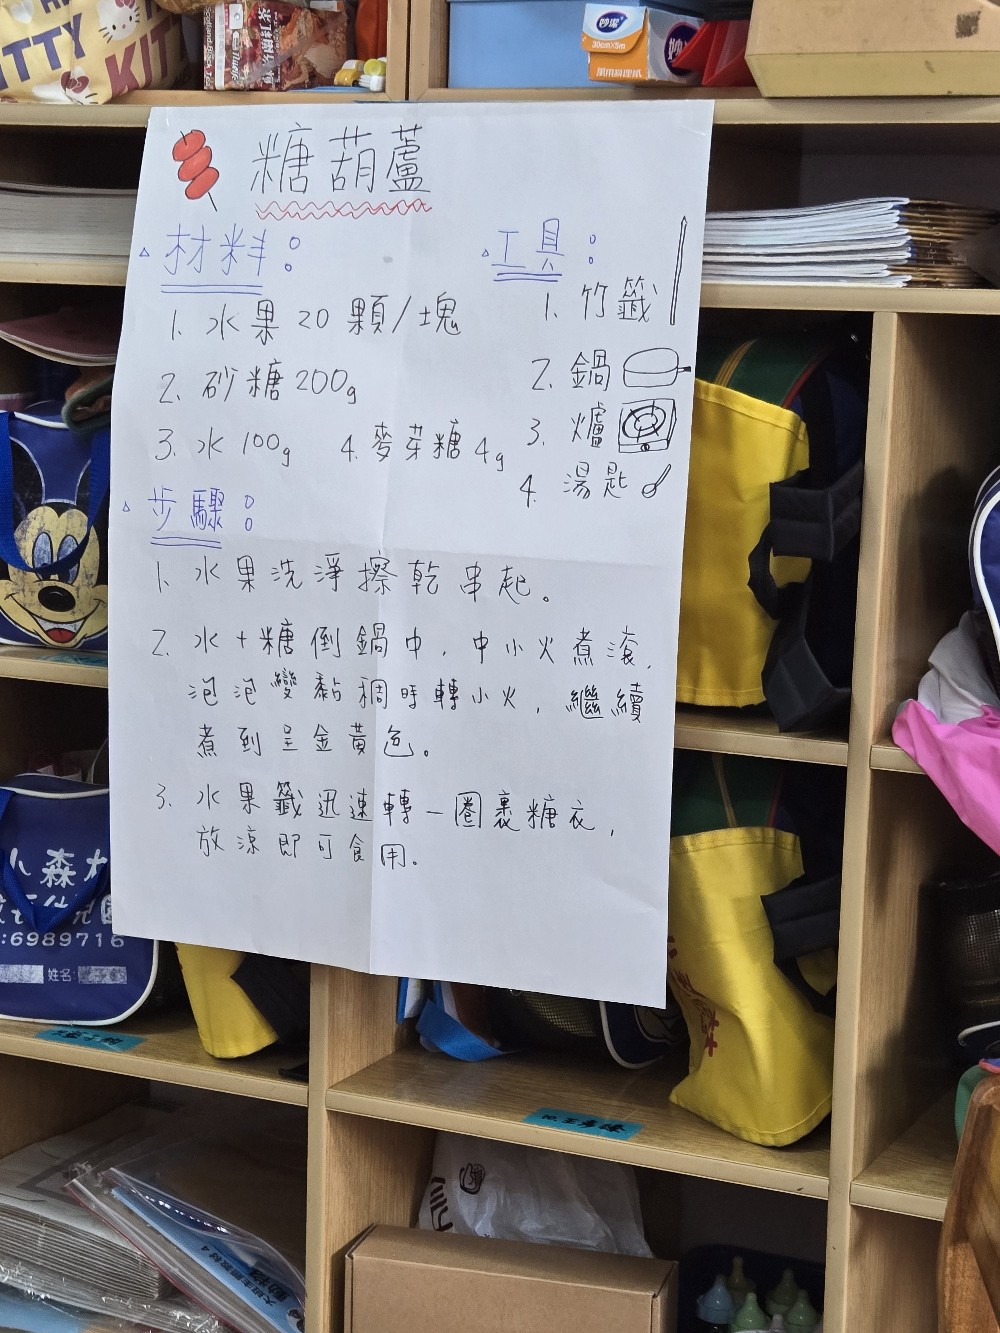 KITTY
KIT
妙潔
30cm×5m
糖葫蘆
材料：
1. 水果20顆/塊
2. 砂糖200g
3. 水100g 4. 麥芽糖4g
工具：
1. 竹籤
2. 鍋
3. 爐
4. 湯匙
步驟：
1. 水果洗淨擦乾串起。
2. 水+糖倒鍋中，中小火煮滾，
泡泡變黏稠時轉小火，繼續
煮到呈金黃色。
3. 水果籤迅速轉一圈裹糖衣，
放涼即可食用。
小森林
:6989716
姓名: